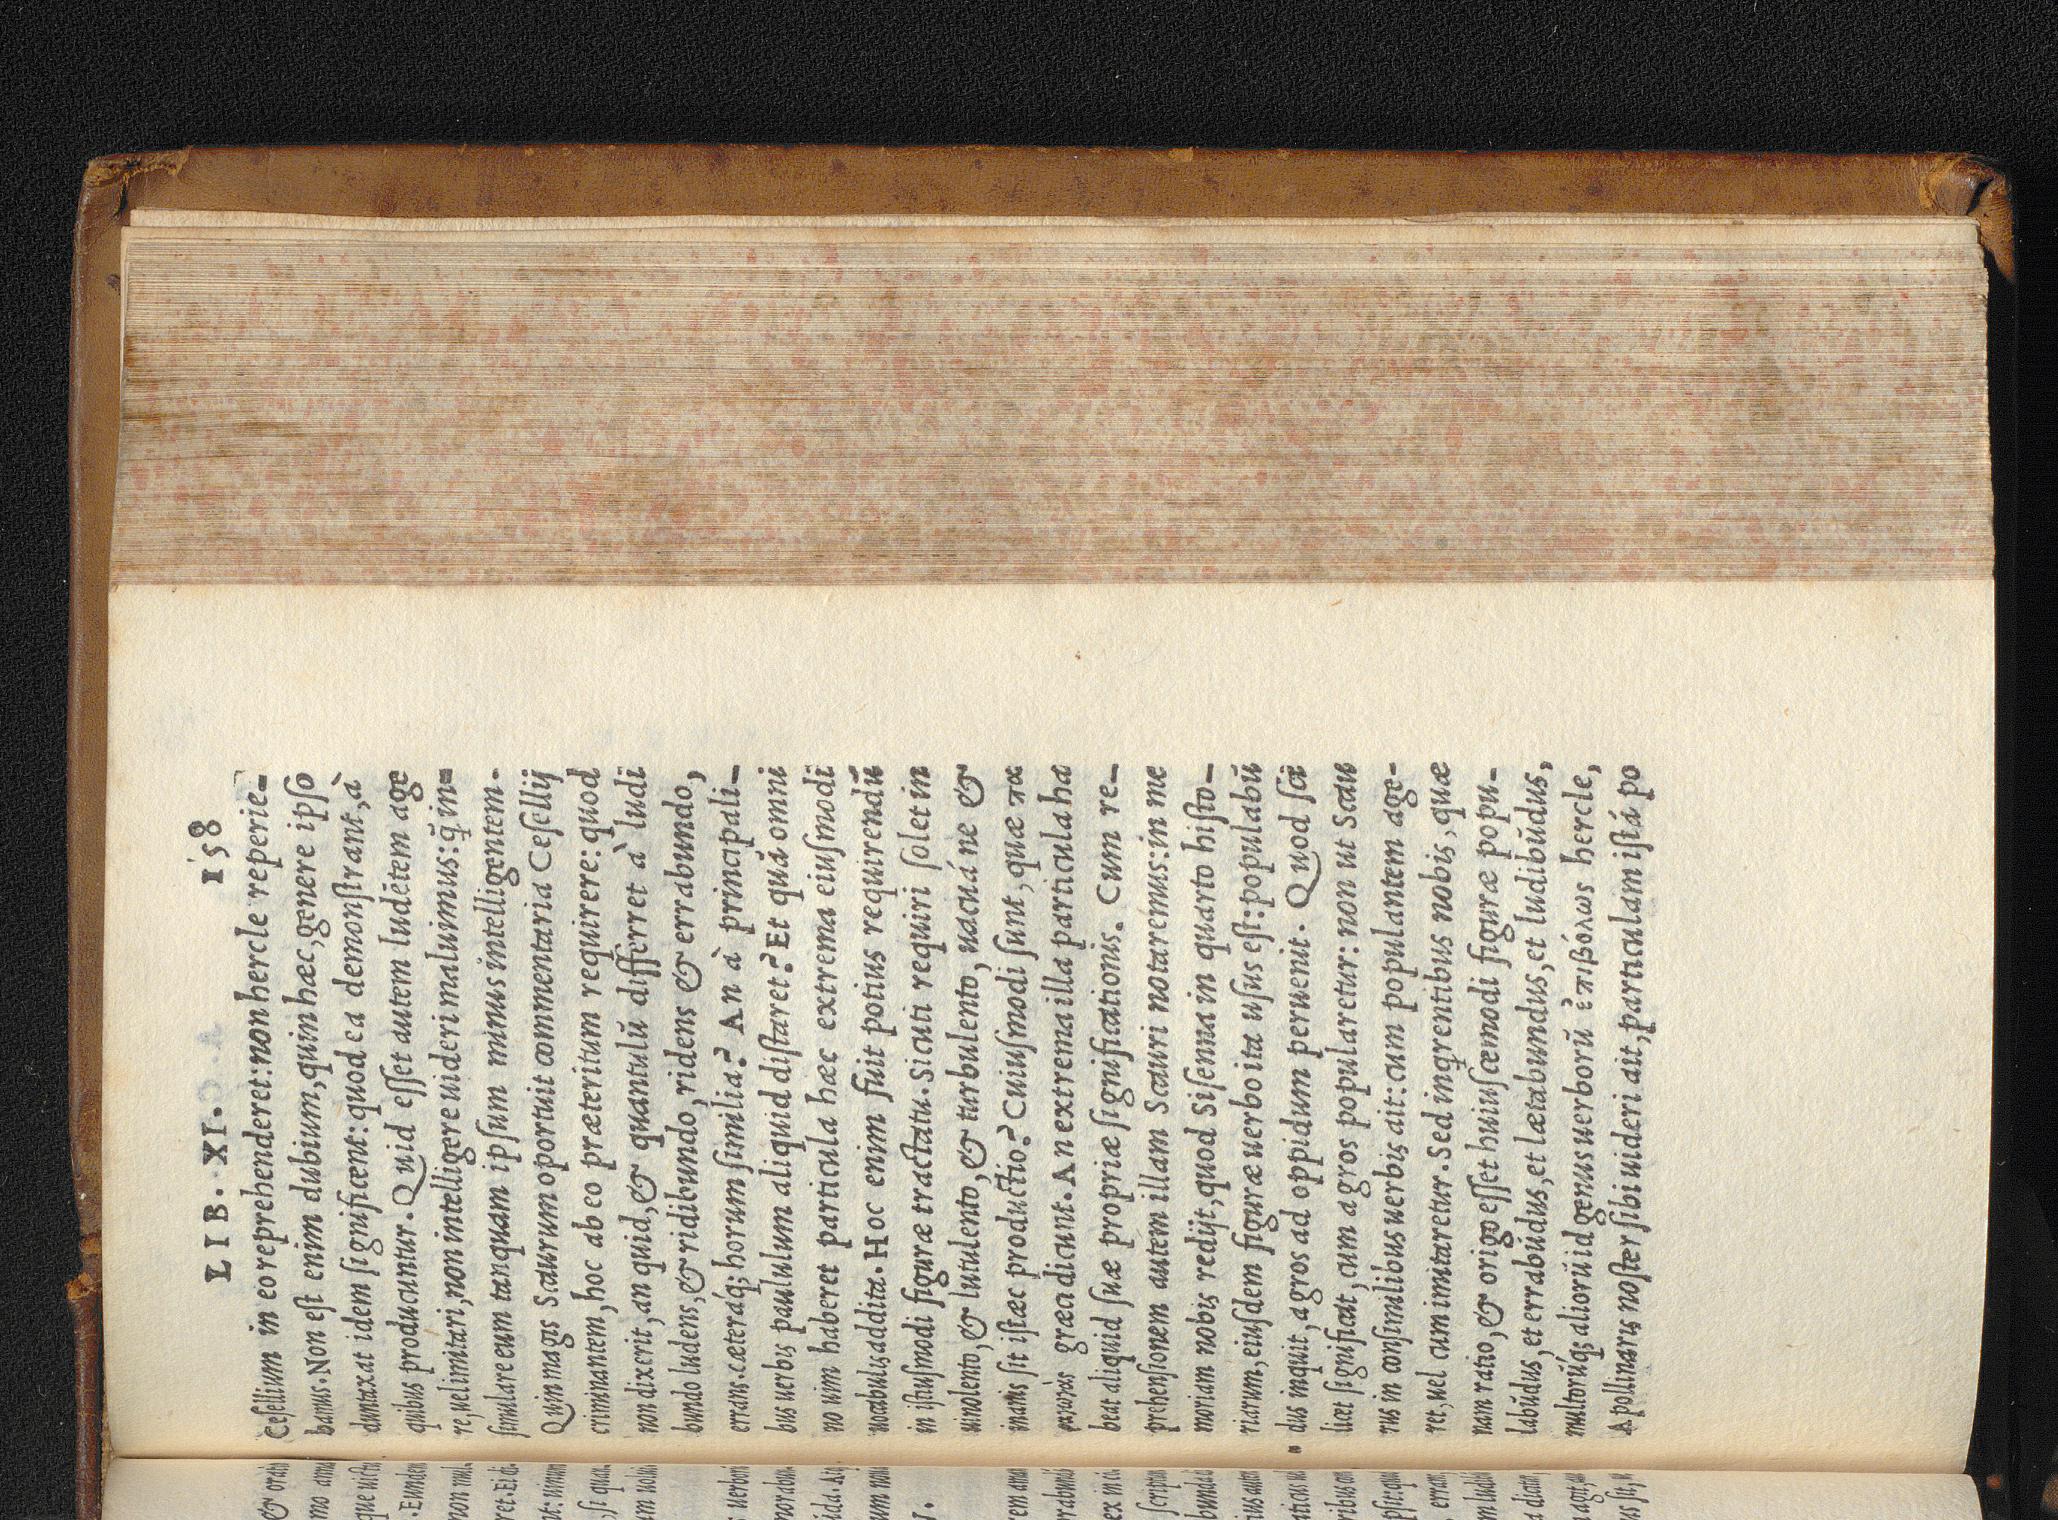 LIB. XI. 158
Cesellium in eo reprehenderet: non hercle reperie-
bamus. Non est enim dubium, quin hæc, genere ipso
duntaxat idem significent: quod ea demonstrant, à
quibus producuntur. Quid esset autem ludētem age
re, uel imitari, non intelligere uideri maluimus: q̄ in-
simulare eum tanquam ipsum minus intelligentem.
Quin magis Scaurum oportuit commentaria Cesellij
criminantem, hoc ab eo præteritum requirere: quod
non dixerit, an quid, & quantulū differret à ludi
bundo ludens, & ridibundo, ridens & errabundo,
errans. cæteráq; horum similia? An à principali-
bus uerbis paululum aliquid distaret? Et quā omni
no uim haberet particula hæc extrema eiusmodi
uocabulis addita. Hoc enim fuit potius requirendū
in istiusmodi figuræ tractatu. Sicuti requiri solet in
uinolento, & lutulento, & turbulento, uacuá ne &
inanis sit istæc productio? Cuiusmodi sunt, quæ πα
græci dicunt. An extrema illa particula ha
beat aliquid suæ propriæ significationis. Cum re-
prehensionem autem illam Scauri notaremus: in me
moriam nobis redijt, quod Sisenna in quarto histo-
riarum, eiusdem figuræ uerbo ita usus est: populabū
dus inquit, agros ad oppidum peruenit. Quod sci
licet significat, cum agros popularetur: non ut Scau
rus in consimilibus uerbis ait: cum populantem age-
ret, uel cum imitaretur. Sed inqrentibus nobis, quæ
nam ratio, & origo esset huiuscæmodi figuræ popu-
lābūdus, et errabūdus, et lætabundus, et ludibūdus,
multorūq; aliorū id genus uerborū ἐπιβόλως hercle,
Apollinaris noster sibi uideri ait, particulam istā po